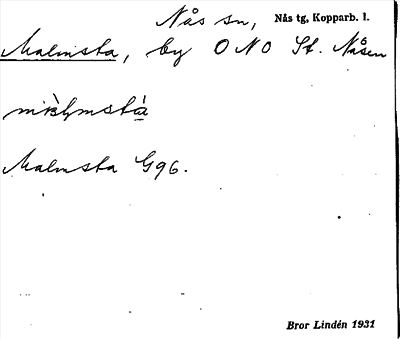 Nås sn, Nås tg, Kopparb. l.
Malmsta, by ONO St. Nåsen
Malmsta G96.
Bror Lindén 1931